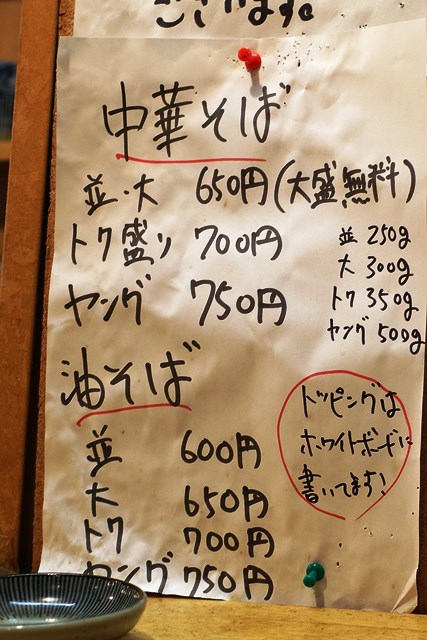 ございます。
中華そば
並・大 650円(大盛無料)
トク盛り 700円
ヤング 750円
並 250g
大 300g
トク 350g
ヤング 500g
油そば
並 600円
大 650円
トク 700円
ヤング 750円
トッピングは
ホワイトボードに
書いてます!